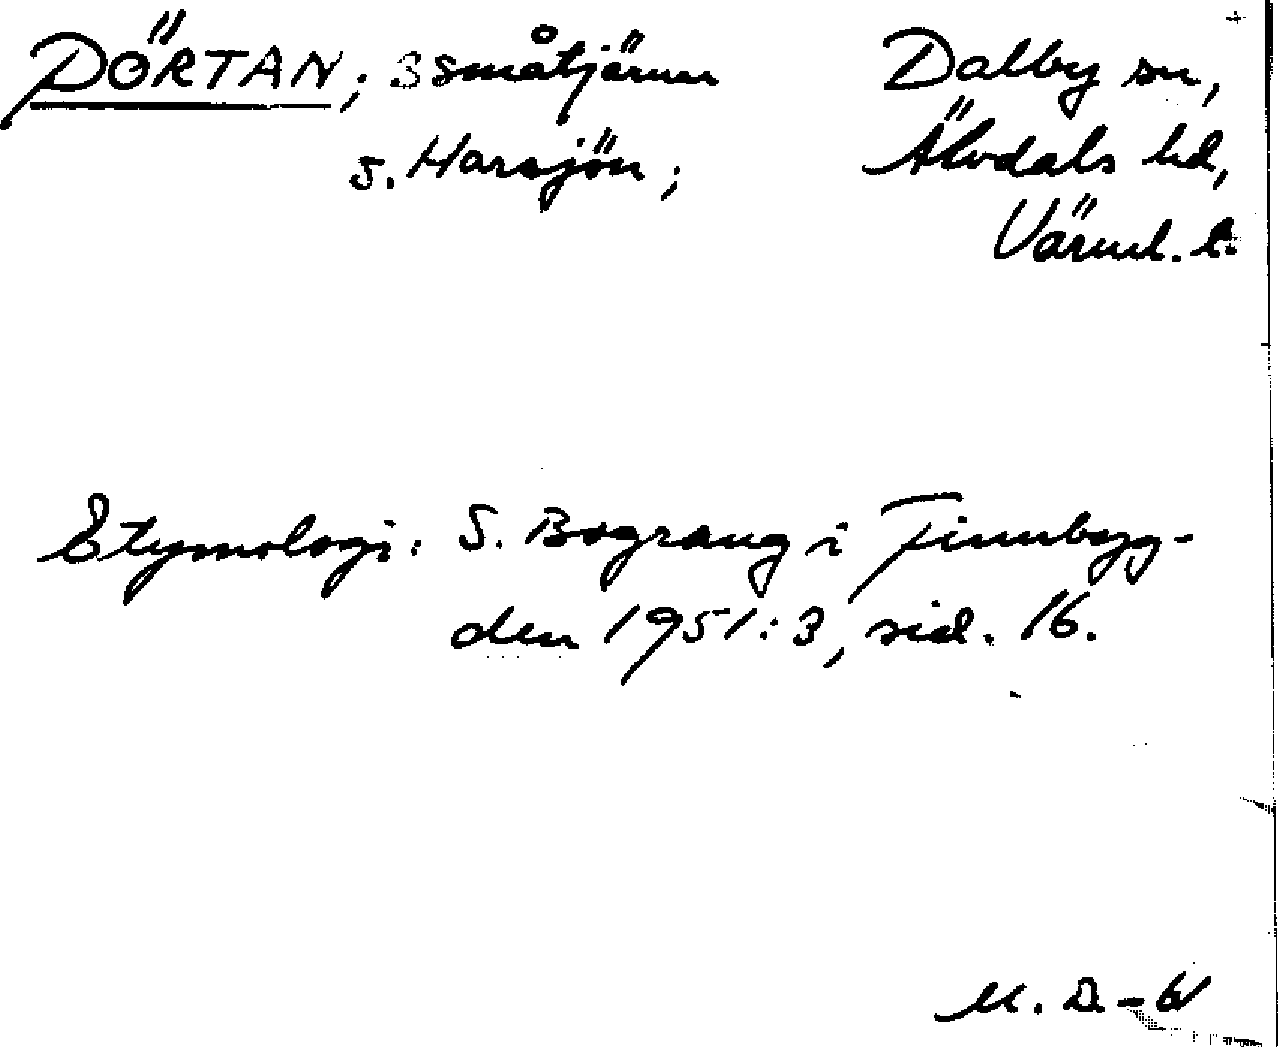 DÖRTAN; 3 småtjärnar Dalby sn,
s. Harsjön; Älvdals hd,
Värml. l.
Etymologi: S. Bograng i Finnbyg-
den 1951:3, sid. 16.
M. D-61